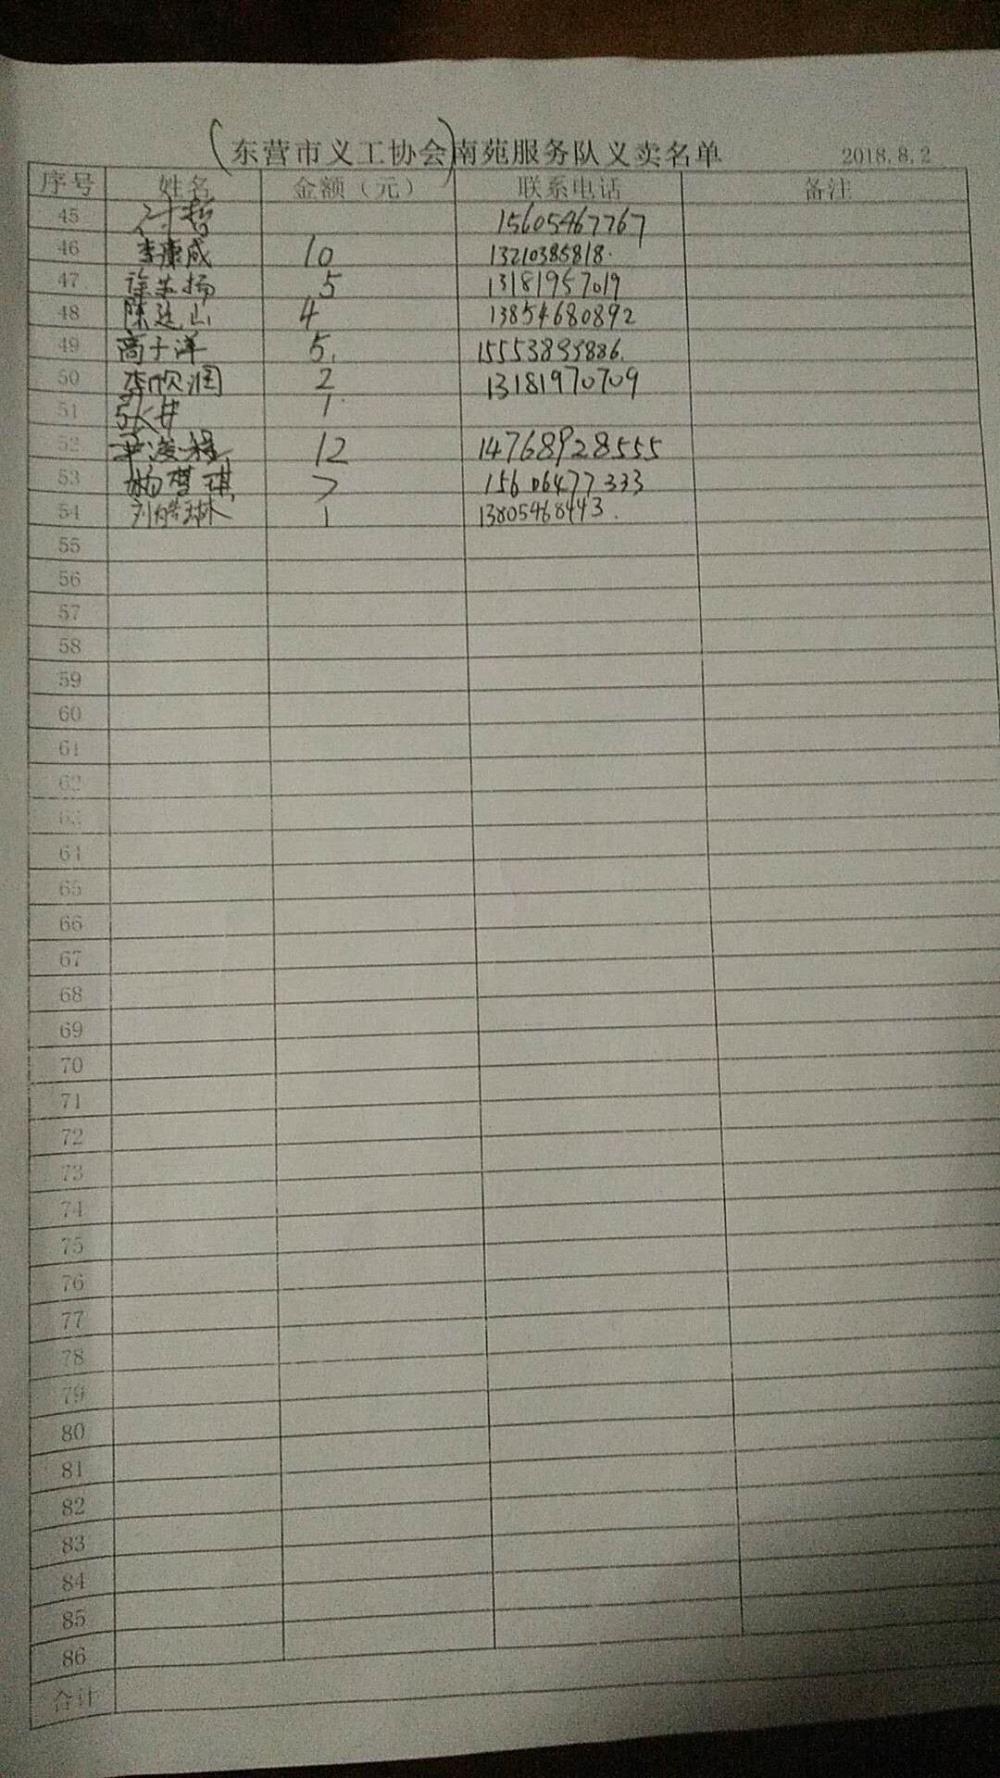 (东营市义工协会)南苑服务队义卖名单 2018.8.2
序号 姓名 金额（元） 联系电话 备注
45 付哲 15605467767
46 李康威 10 13210385818.
47 徐 扬 5 13181957019
48 陈延山 4 13854680892
49 高子洋 5. 15553899886.
50 李欣润 2 13181970709
51 1
52 12 14768928555
53 杨 琪 7 15606477333
54 刘皓琳 1 13805468443.
55
56
57
58
59
60
61
62
63
64
65
66
67
68
69
70
71
72
73
74
75
76
77
78
79
80
81
82
83
84
85
86
合计